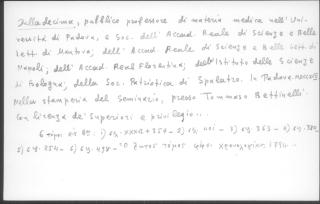 Dalladecima, pubblico professore di materia medica nell' Uni-
versità di Padova, e Soc. dell' Accad. Reale di Scienze e Belle
Lett. di Mantova, dell' Accad. Reale di Scienze e Belle Lett. di
Napoli, dell' Accad. Real Florentina, dell' Istituto delle Scienze
di Bologna, della Soc. Patriotica di Spalatro. In Padova.
Nella stamperia del Seminario, presso Tommaso Bettinelli.
Con licenza de' Superiori e privilegio...
6 τόμοι εἰς 8ο: 1) σς. XXXII+354 - 2) σς. - 3) σς. 363 - 4) σς.
5) σς. 354 - 6) σς. 498 - Ὁ ἕκτος τόμος φέρει χρονολογίαν 1794...